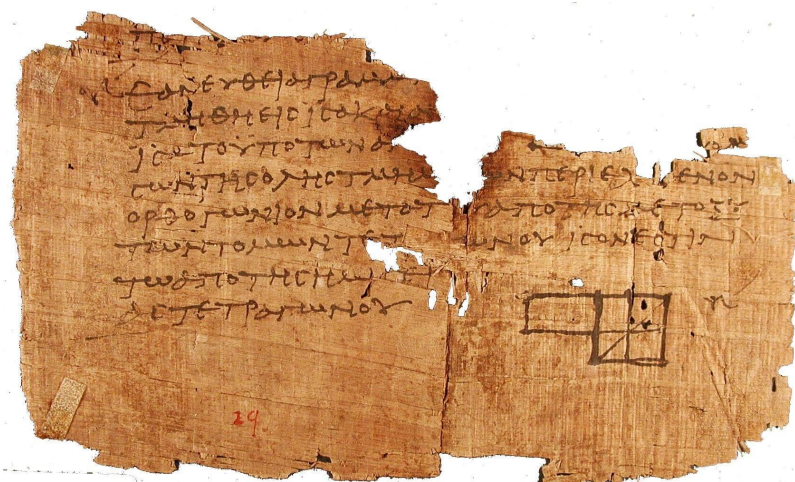 ΕΑΝΕΥΘΕΙΑΓΡΑΜΜ
ΤΜΗΘΗΕΙϹΙϹΑΚΑΙΑ
ΙϹΑΤΟΥΠΟΤΩΝΑ
ϹΩΝΤΗϹΟΛΗϹΤΜΗΜ ΩΝΠΕΡΙΕΧ ΜΕΝΟΝ
ΟΡΘΟΓΩΝΙΟΝΜΕΤΑΤ ΥΑΠΟΤΗϹΜΕΤΟΞΥ
ΤΩΝΤΟΜΩΝΤΕΤ ΩΝΟΥΙϹΟΝΕϹΤΙΝ
ΤΩΑΠΟΤΗϹΗΜΙ ΕΙ
ΑϹΤΕΤΡΑΓΩΝΟΥ
29